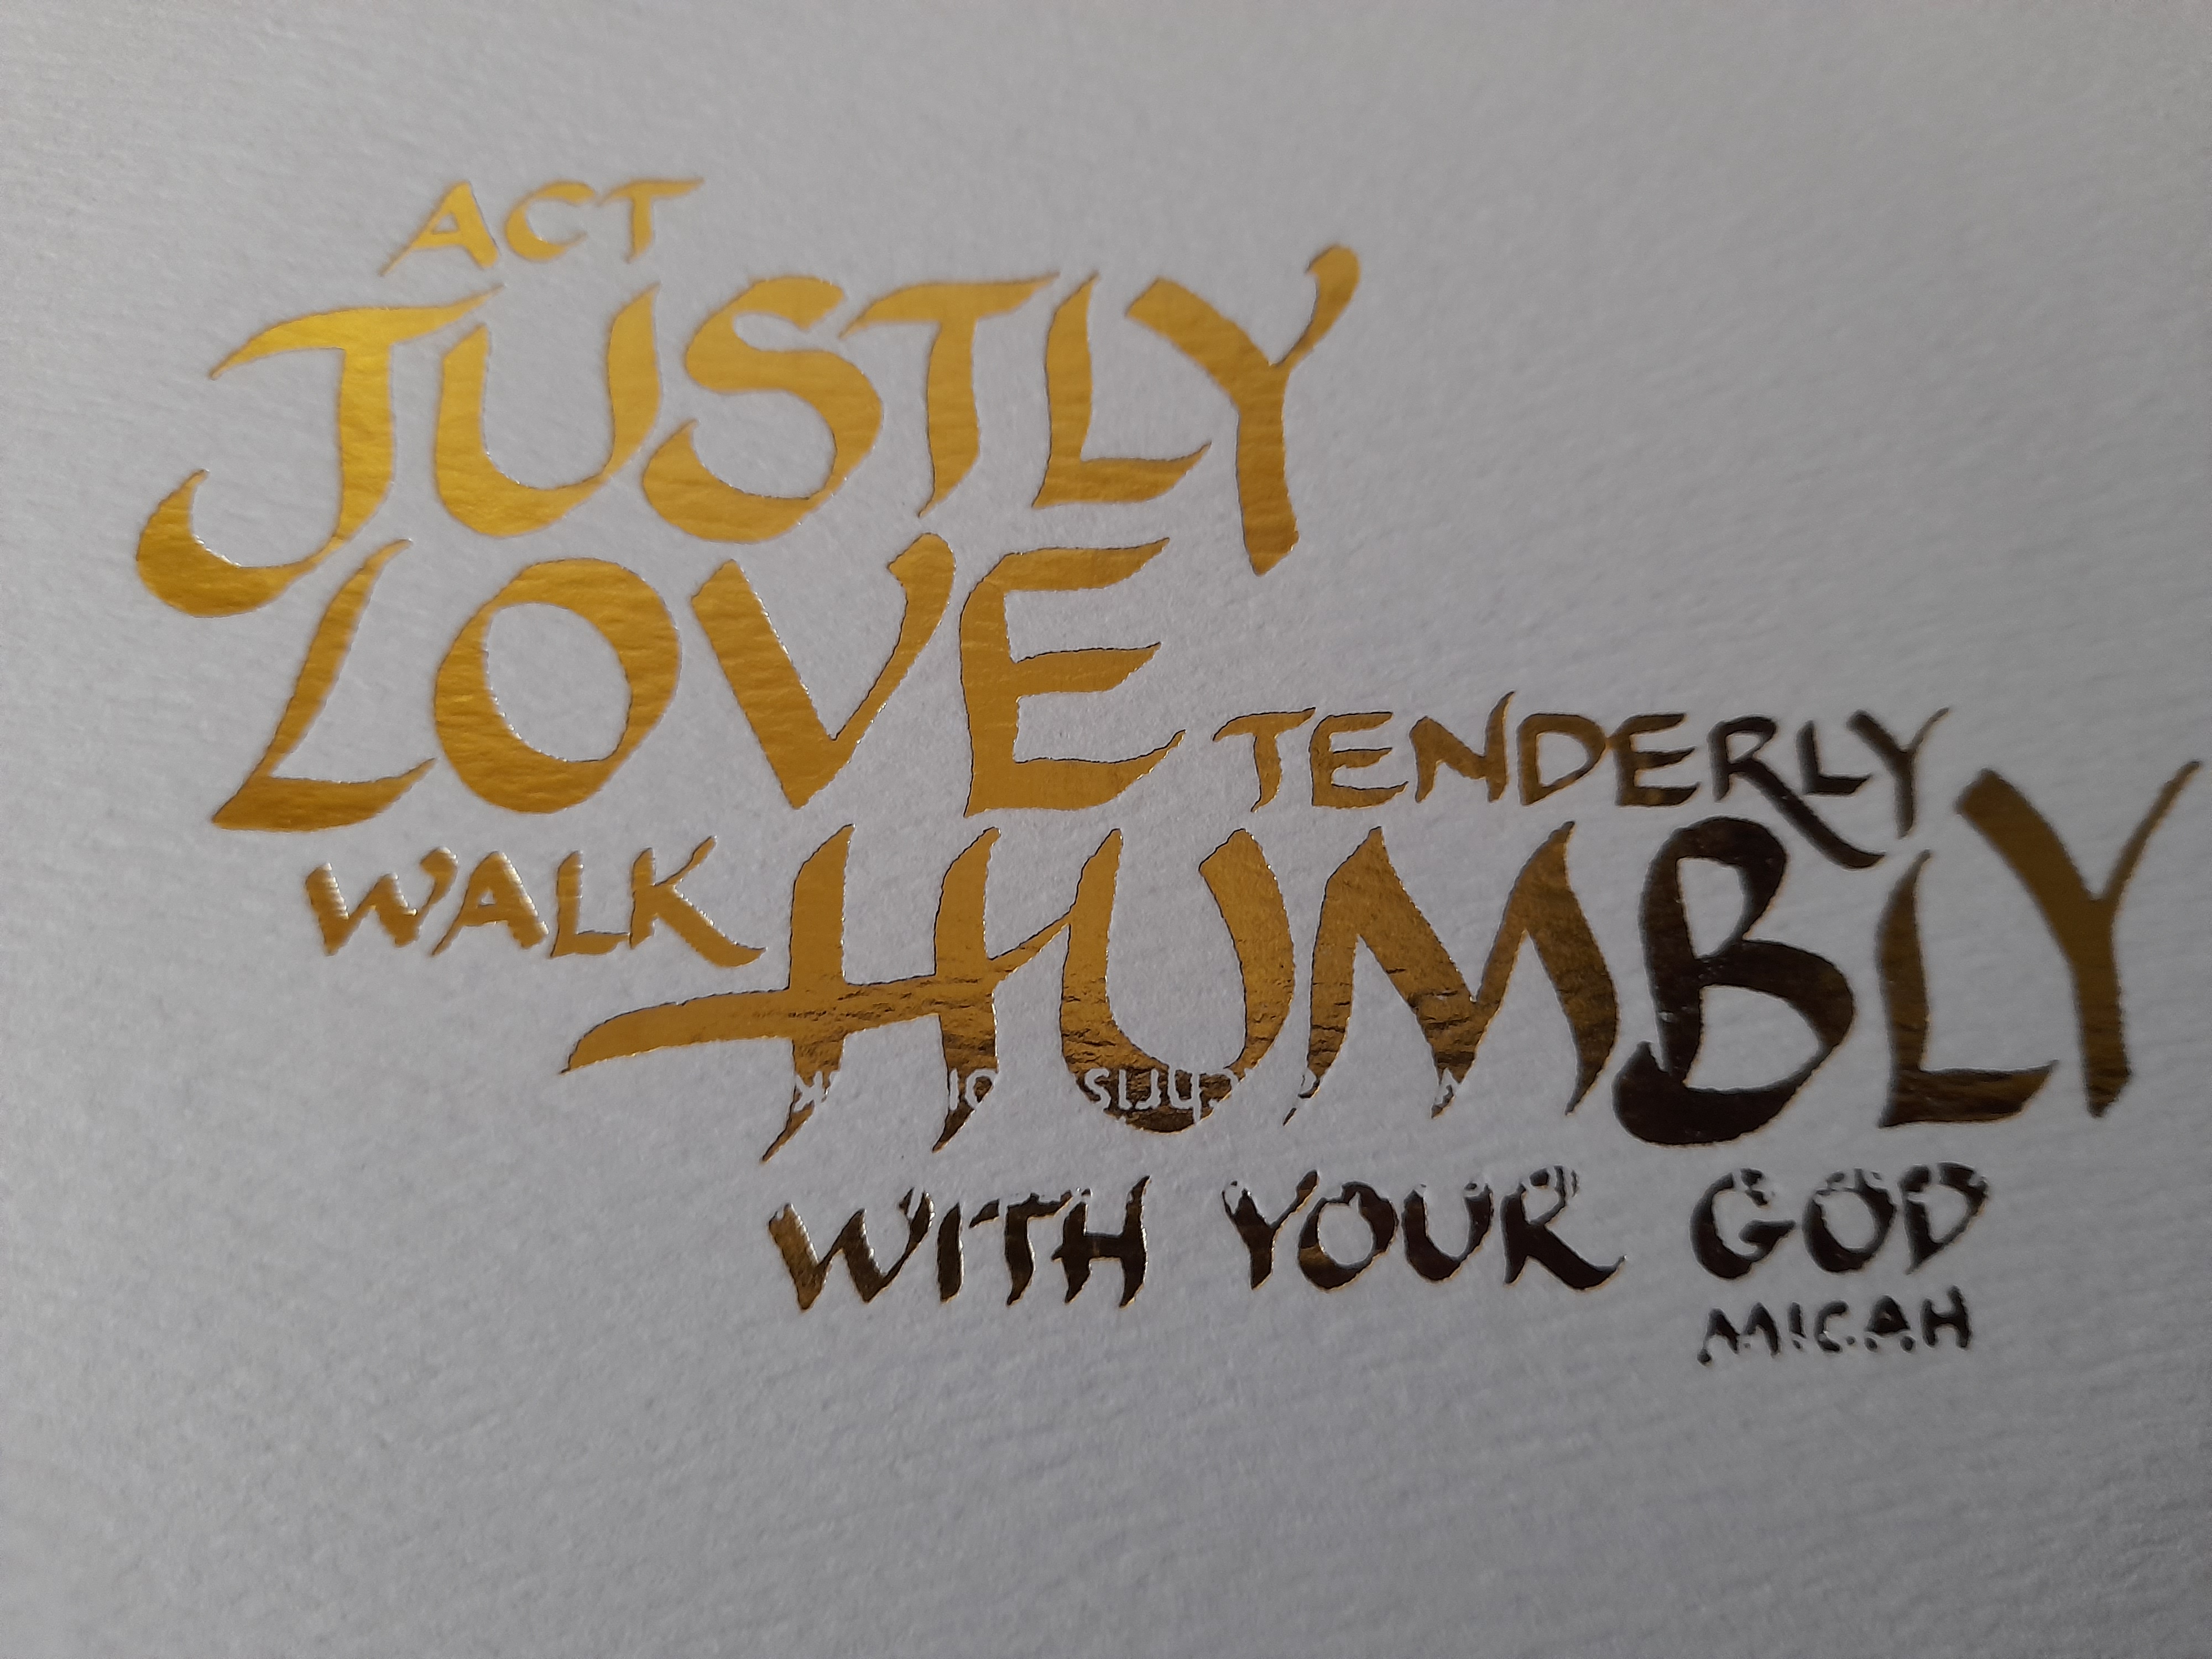 ACT
JUSTLY
LOVE TENDERLY
WALK HUMBLY
WITH YOUR GOD
MICAH